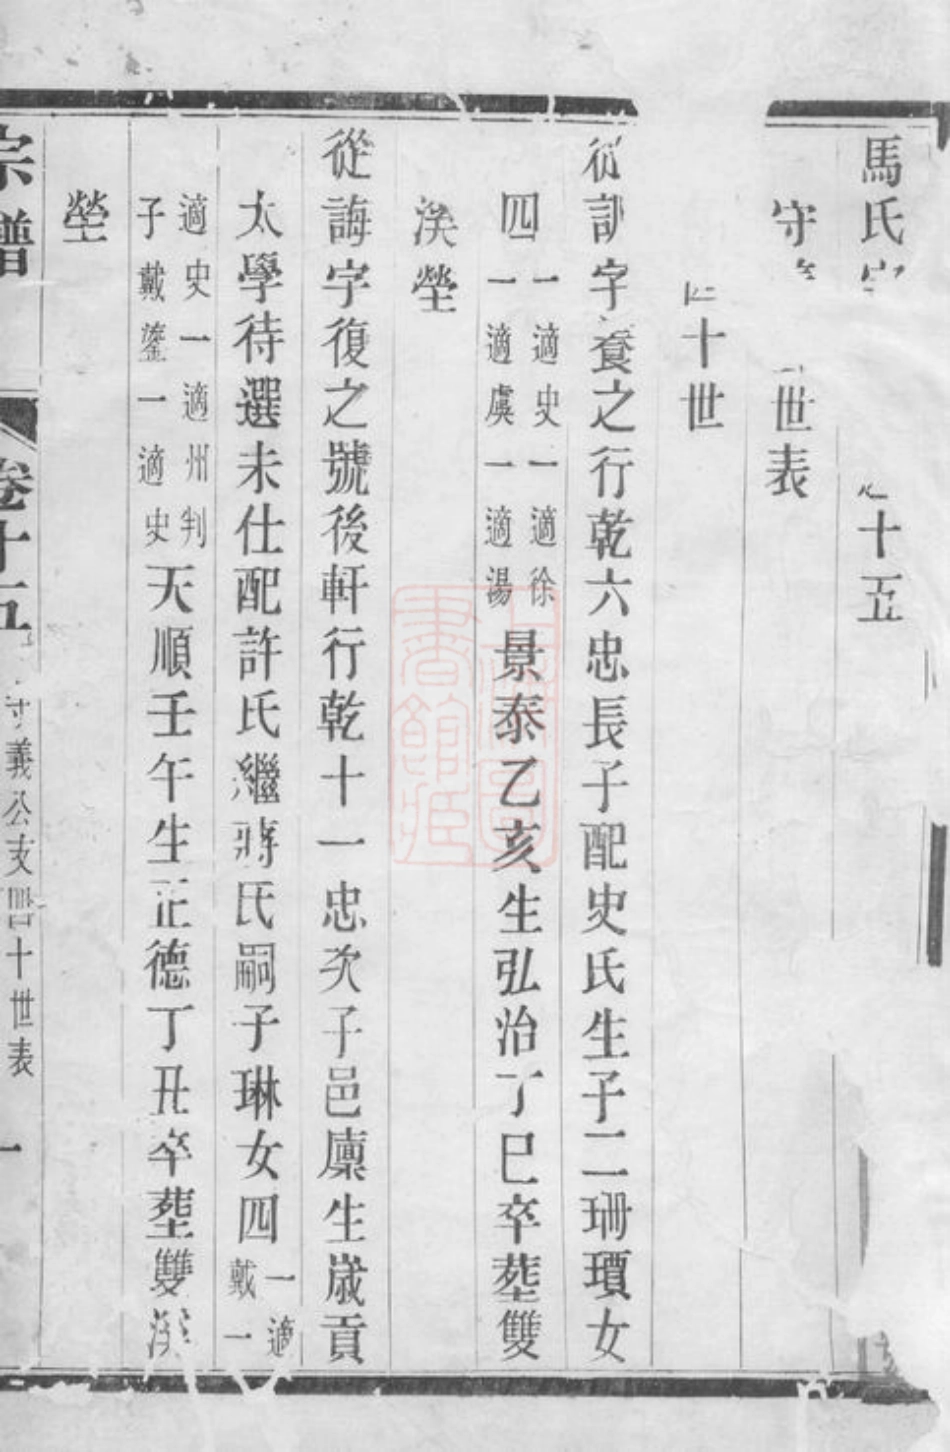 馬氏宗 卷十五
守 世表
四十世
從訓字養之行乾六忠長子配史氏生子二珊瓊女
四一適史一適徐一適虞一適湯景泰乙亥生弘治丁巳卒葬雙
溪塋
從誨字復之號後軒行乾十一忠次子邑廩生歲貢
太學待選未仕配許氏繼蔣氏嗣子琳女四一適戴一
適史一適州判子戴鎏一適史天順壬午生正德丁丑卒葬雙溪
塋
宗譜 卷十五 守義公支四十世表 一
上海圖書館藏